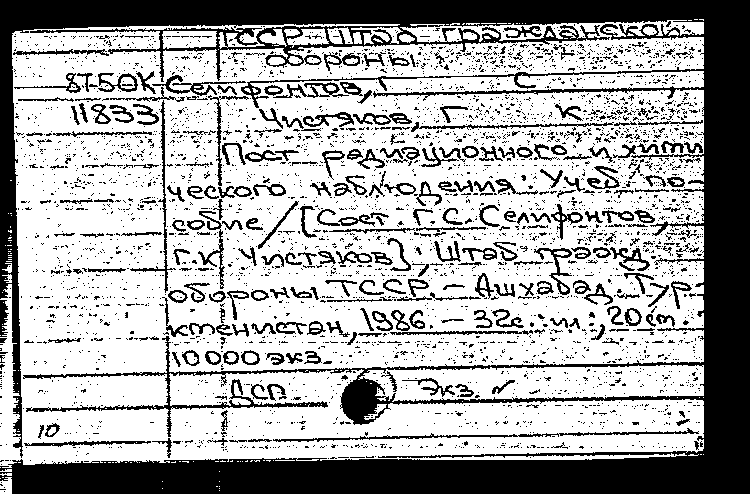 ТССР. Штаб гражданской
обороны
87-50К Селифонтов, Г С ,
11833 Чистяков, Г К
Пост радиационного и хими
ческого наблюдения: Учеб. по-
собие / [Сост. Г.С. Селифонтов,
Г.К. Чистяков]; Штаб гражд.
обороны ТССР. – Ашхабад: Тур-
кменистан, 1986. – 32с.: ил.; 20см. –
10000 экз.
ДСП Экз. ✓
10